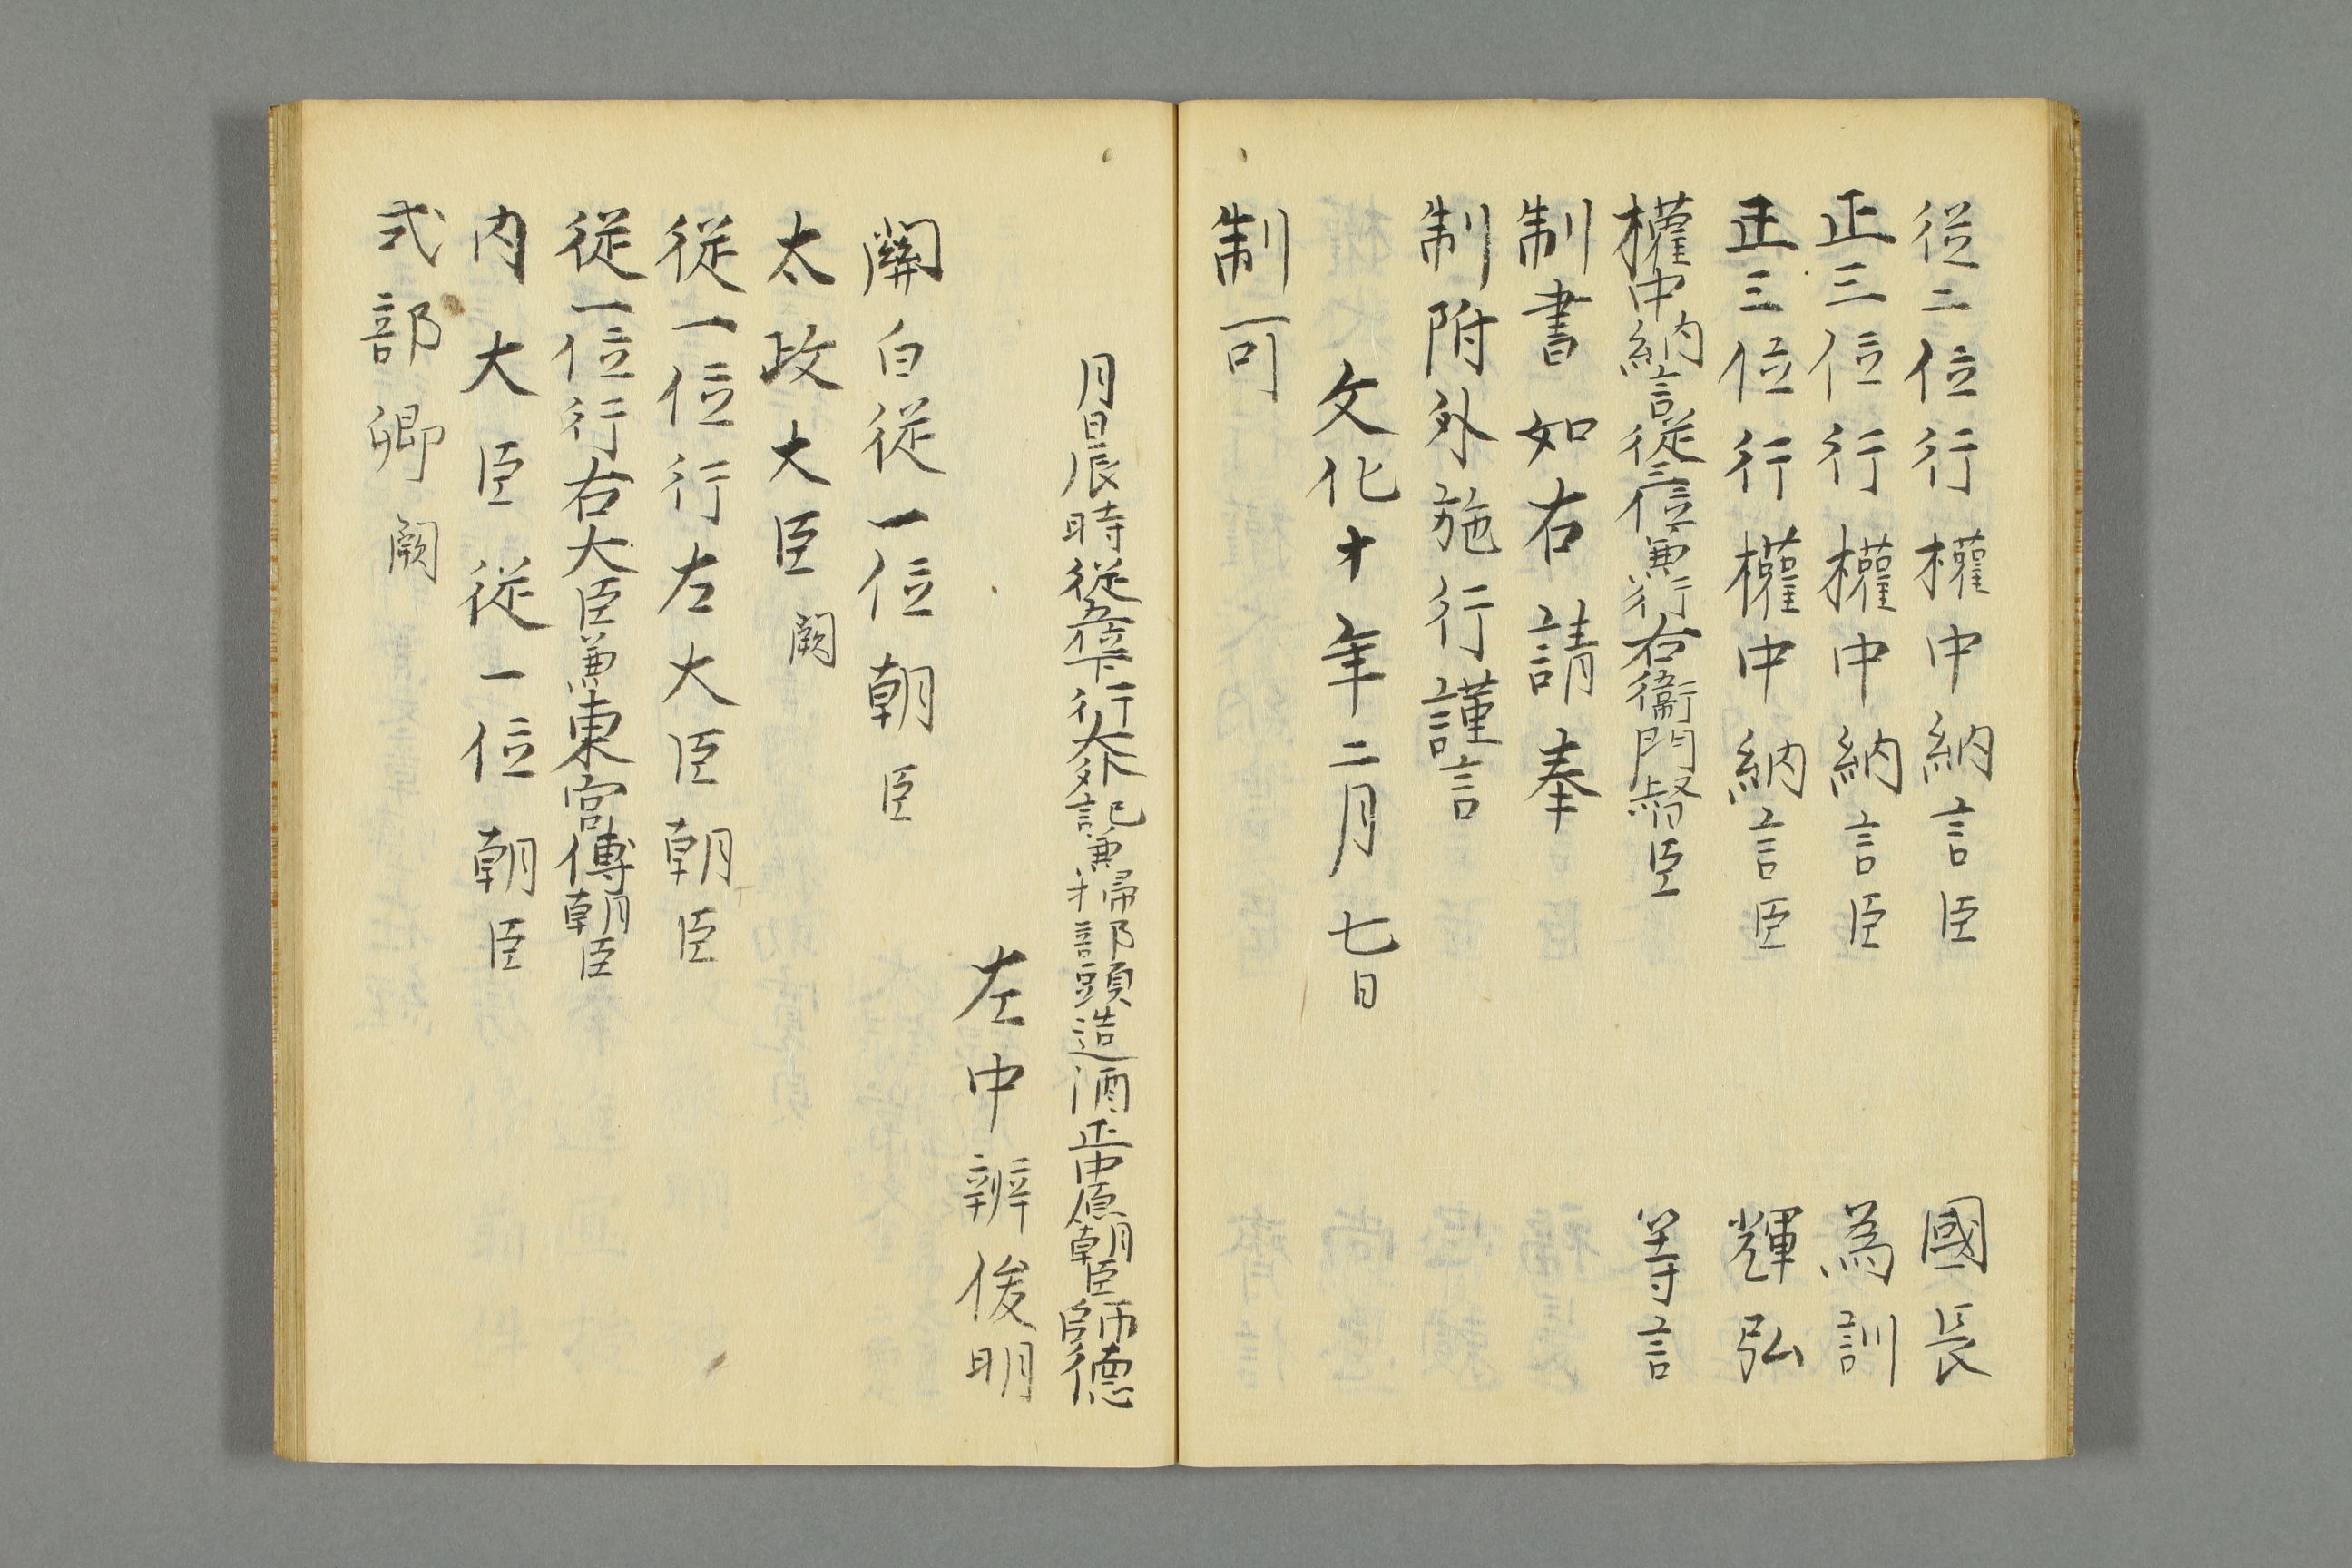 従二位行權中納言臣 國長
正三位行權中納言臣 為訓
正三位行權中納言臣 輝弘
權中納言從三位兼行右衞門督臣 等言
制書如右請奉
制附外施行謹言
文化十年二月七日
制可
月日辰時從五位下行大外記兼掃部頭造酒正中原朝臣師德
左中辨俊明
關白從一位朝臣
太政大臣闕
從一位行左大臣朝臣
從一位行右大臣兼東宮傅朝臣
内大臣從一位朝臣
式部卿闕